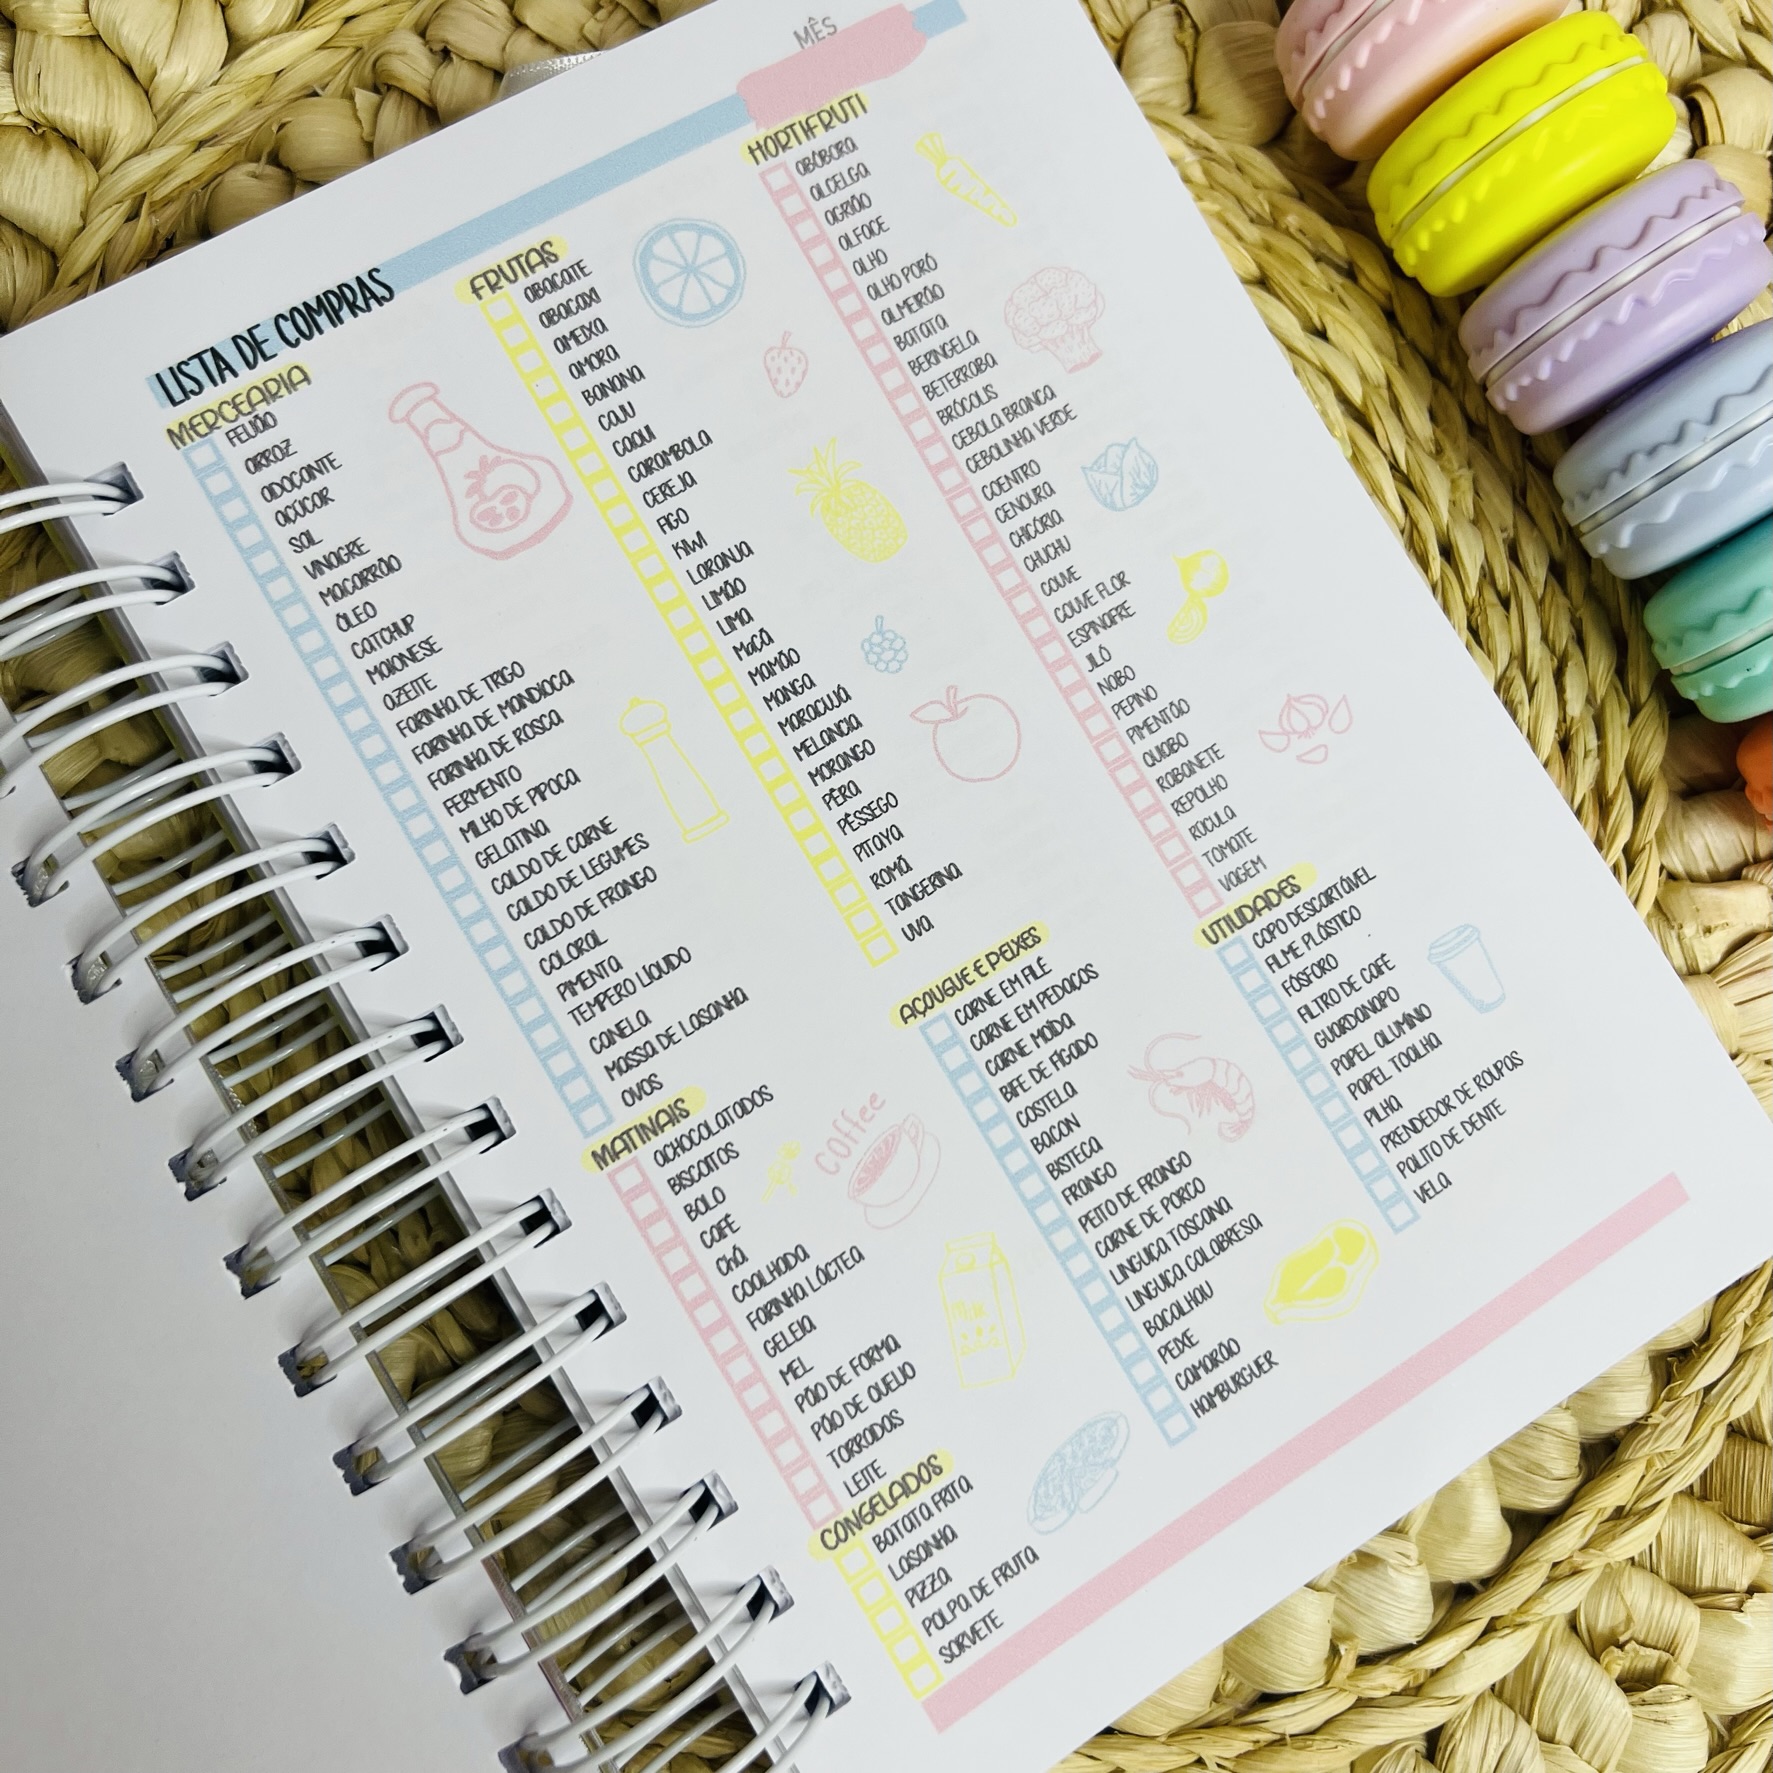 MÊS
LISTA DE COMPRAS
MERCEARIA
FEIJÃO
ARROZ
ADOÇANTE
AÇÚCAR
SAL
VINAGRE
MACARRÃO
ÓLEO
CATCHUP
MAIONESE
AZEITE
FARINHA DE TRIGO
FARINHA DE MANDIOCA
FARINHA DE ROSCA
FERMENTO
MILHO DE PIPOCA
GELATINA
CALDO DE CARNE
CALDO DE LEGUMES
CALDO DE FRANGO
COLORAL
PIMENTA
TEMPERO LÍQUIDO
CANELA
MASSA DE LASANHA
OVOS
MATINAIS
ACHOCOLATADOS
BISCOITOS
BOLO
CAFÉ
CHÁ
COALHADA
FARINHA LÁCTEA
GELEIA
MEL
PÃO DE FORMA
PÃO DE QUEIJO
TORRADAS
LEITE
Coffee
Milk
CONGELADOS
BATATA FRITA
LASANHA
PIZZA
POLPA DE FRUTA
SORVETE
FRUTAS
ABACATE
ABACAXI
AMEIXA
AMORA
BANANA
CAJU
CAQUI
CARAMBOLA
CEREJA
FIGO
KIWI
LARANJA
LIMÃO
LIMA
MAÇÃ
MAMÃO
MANGA
MARACUJÁ
MELANCIA
MORANGO
PÊRA
PÊSSEGO
PITAYA
ROMÃ
TANGERINA
UVA
AÇOUGUE E PEIXES
CARNE EM FILÉ
CARNE EM PEDAÇOS
CARNE MOÍDA
BIFE DE FÍGADO
COSTELA
BACON
BISTECA
FRANGO
PEITO DE FRANGO
CARNE DE PORCO
LINGUIÇA TOSCANA
LINGUIÇA CALABRESA
BACALHAU
PEIXE
CAMARÃO
HAMBURGUER
HORTIFRUTI
ABÓBORA
ALCELGA
AGRIÃO
ALFACE
ALHO
ALHO PORÓ
ALMEIRÃO
BATATA
BERINGELA
BETERRABA
BRÓCOLIS
CEBOLA BRANCA
CEBOLINHA VERDE
COENTRO
CENOURA
CHICÓRIA
CHUCHU
COUVE
COUVE FLOR
ESPINAFRE
JILÓ
NABO
PEPINO
PIMENTÃO
QUIABO
RABANETE
REPOLHO
RÚCULA
TOMATE
VAGEM
UTILIDADES
COPO DESCARTÁVEL
FILME PLÁSTICO
FÓSFORO
FILTRO DE CAFÉ
GUARDANAPO
PAPEL ALUMÍNIO
PAPEL TOALHA
PILHA
PRENDEDOR DE ROUPAS
PALITO DE DENTE
VELA